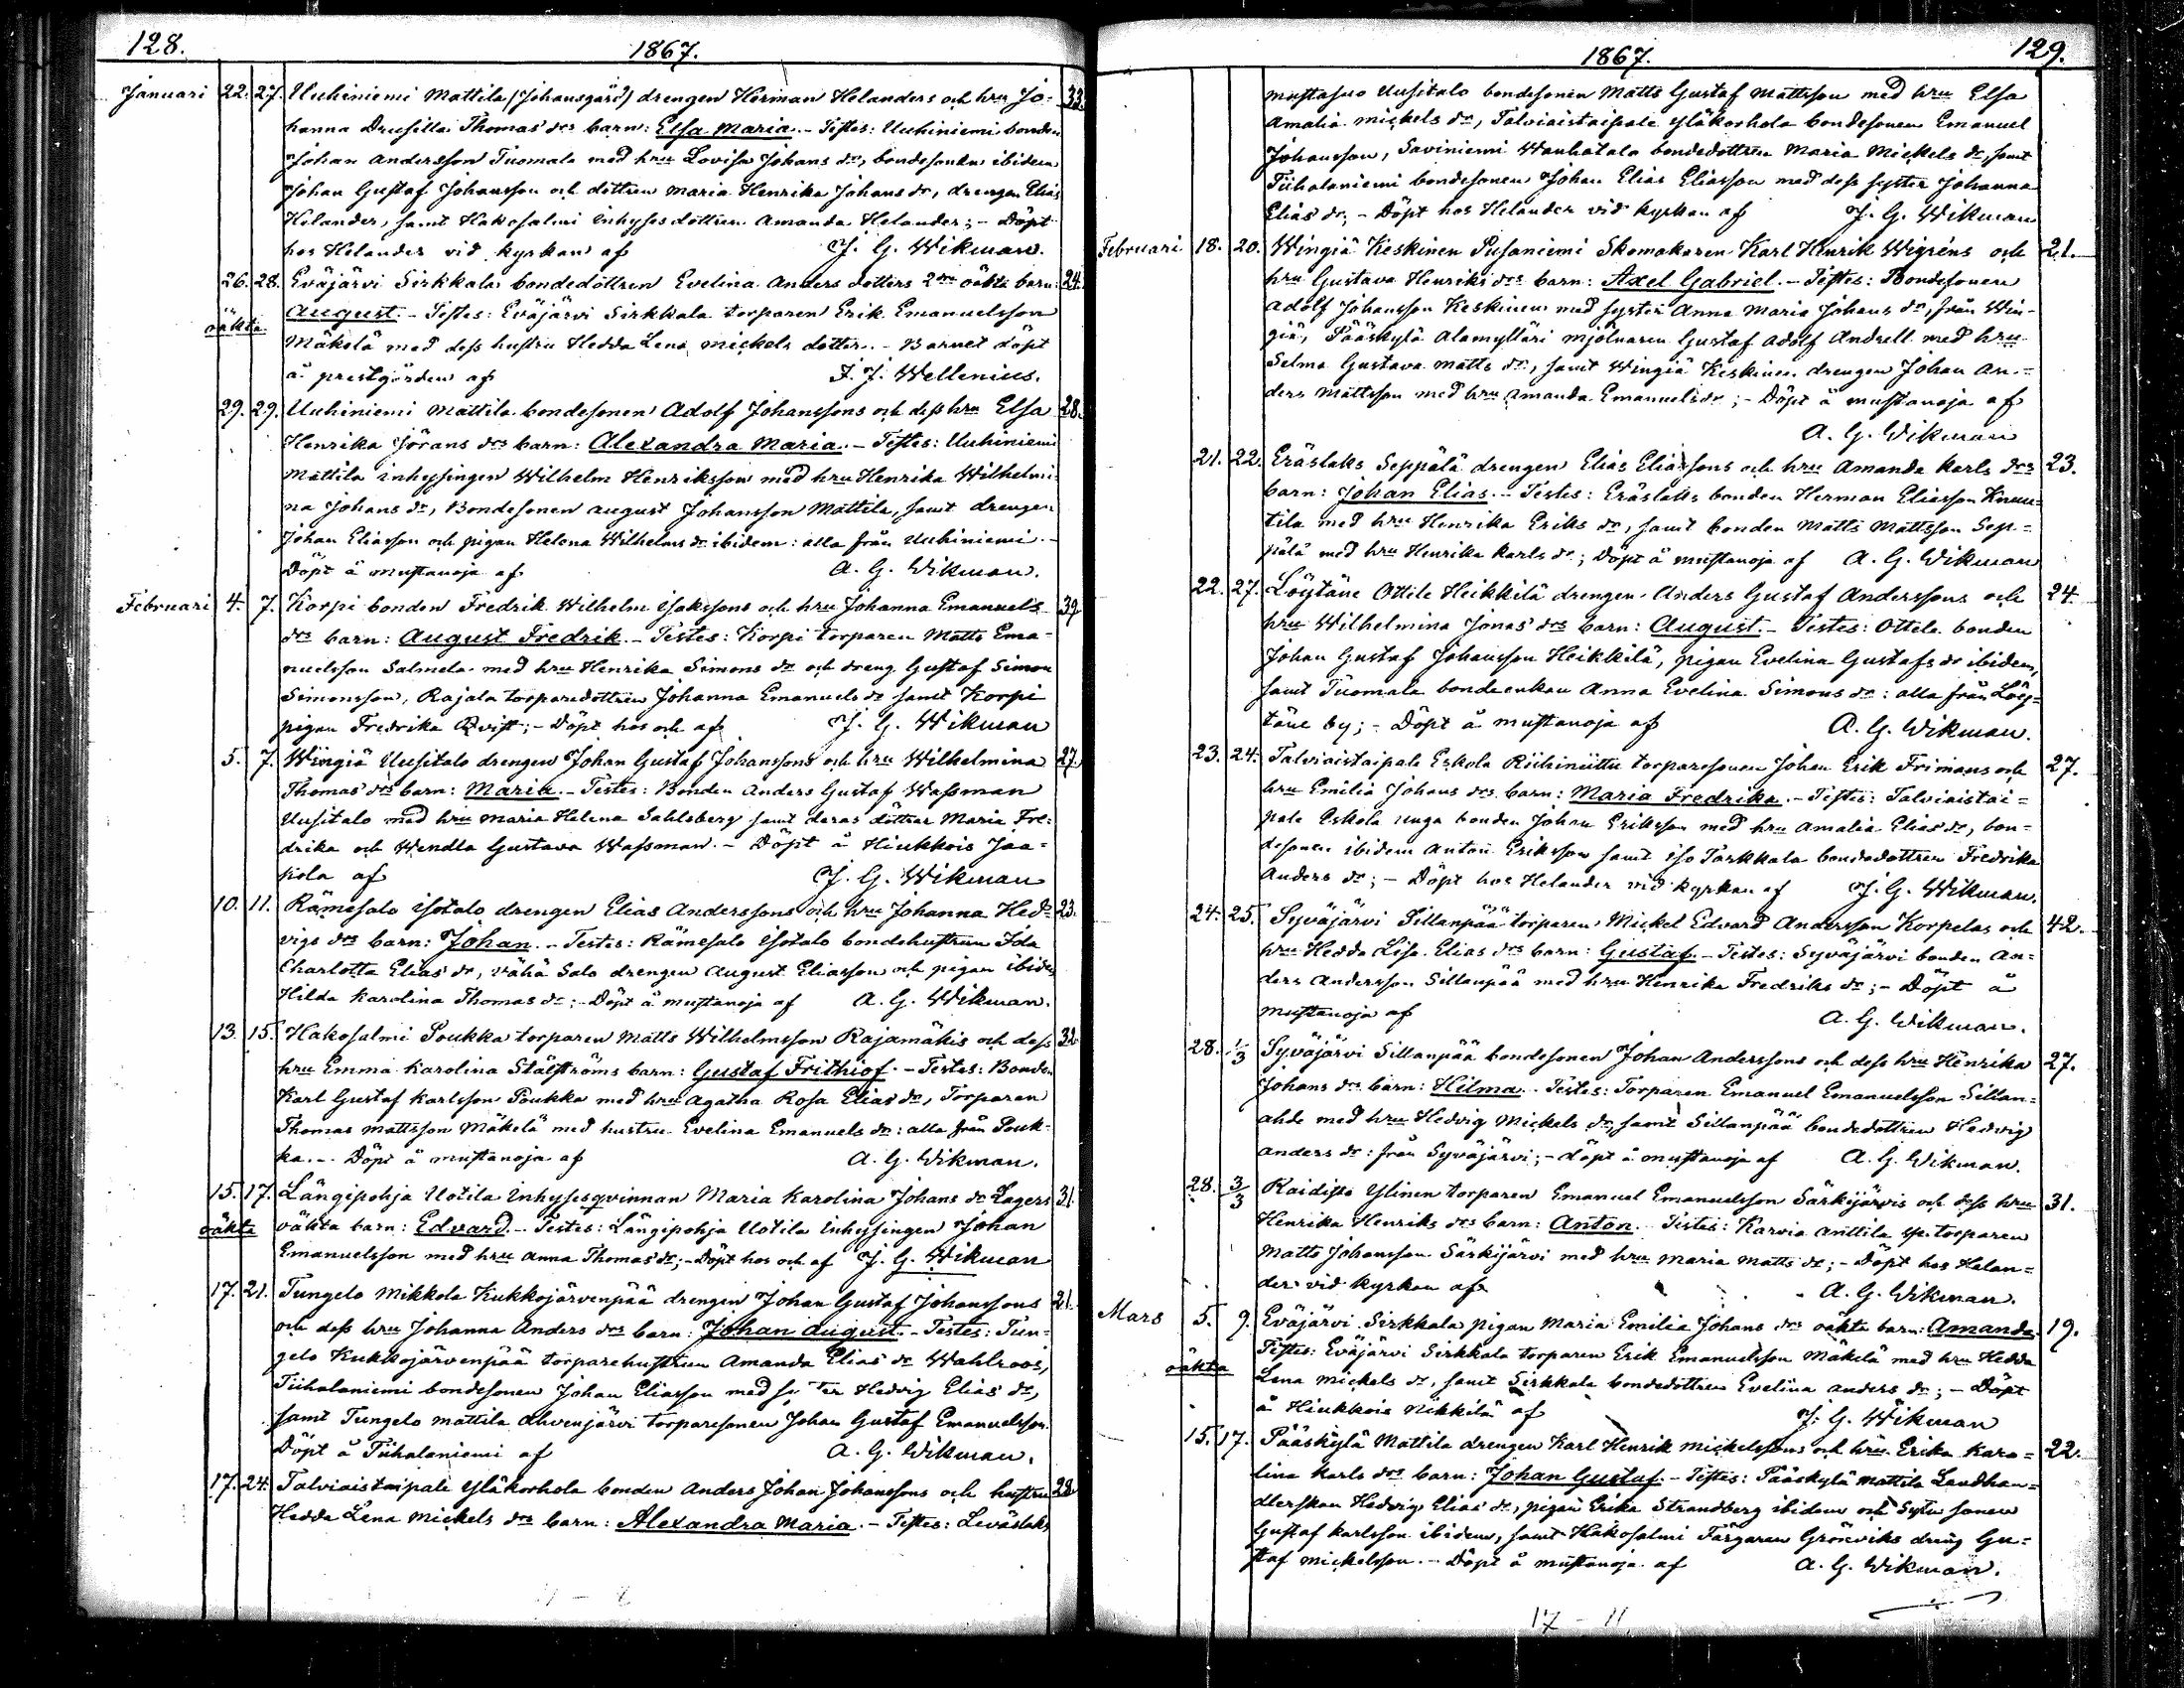 128.
1867.
Januari 22. 27. Uuhiniemi Mattila (Johansgård) drengen Herman Helanders och hru Jo- 33.
hanna Drusilla Thomas drs barn: Elsa Maria. - Testes: Uuhiniemi bonden
Johan Andersson Tuomala med hru Lovisa Johans dr, bondesonen ibidem
Johan Gustaf Johansson och dottren Maria Henrika Johans dr, drengen Elias
Helander, samt Hakosalmi inhysesdottren Amanda Helander; - Döpt
hos Helander vid kyrkan af J. G. Wikman.
26. 28. Eväjärvi Sirkkala bondedottren Evelina Anders dotters 2dra oäkta barn: 24.
oäkta August. - Testes: Eväjärvi Sirkkala torparen Erik Emanuelsson
Mäkelä med dess hustru Hedda Lena Mickels dotter. - Barnet döpt
å prestgården af F. J. Wellenius.
29. 29. Uuhiniemi Mattila bondesonen Adolf Johanssons och dess hru Elsa 28.
Henrika Jörans drs barn: Alexandra Maria. - Testes: Uuhiniemi
Mattila inhysingen Wilhelm Henriksson med hru Henrika Wilhelmi-
na Johans dr, Bondesonen August Johansson Mattila, samt drengen
Johan Eliasson och pigan Helena Wilhelms dr ibidem: alla från Uuhiniemi. -
Döpt å Mustanoja af A. G. Wikman.
Februari 4. 7. Korpi bonden Fredrik Wilhelm Isakssons och hru Johanna Emanuels 39
drs barn: August Fredrik. - Testes: Korpi torparen Matts Ema-
nuelsson Salmela med hru Henrika Simons dr och dreng Gustaf Simon
Simonsson, Rajala torparedottren Johanna Emanuels dr samt Korpi
pigan Fredrika Qvist; - Döpt hos och af J. G. Wikman
5. 7. Wingiä Uusitalo drengen Johan Gustaf Johanssons och hru Wilhelmina 27
Thomas drs barn: Maria. - Testes: Bonden Anders Gustaf Wassman
Uusitalo med hru Maria Helena Sahlsberg samt deras döttrar Maria Fre-
drika och Wendla Gustava Wassman. - Döpt å Hiukkois Jaa-
kola af J. G. Wikman
10. 11. Rämesalo Isotalo drengen Elias Anderssons och hru Johanna Hed- 23.
vigs drs barn: Johan. - Testes: Rämesalo Isotalo bondehustrun Ida
Charlotta Elias dr, Vähä Salo drengen August Eliasson och pigan ibidem
Hilda Karolina Thomas dr; - Döpt å Mustanoja af A. G. Wikman.
13. 15. Hakosalmi Poukka torparen Matts Wilhelmsson Rajamäkis och dess 32
hru Emma Karolina Stålströms barn: Gustaf Frithiof. - Testes: Bonden
Karl Gustaf Karlsson Poukka med hru Agatha Rosa Elias dr, Torparen
Thomas Mattsson Mäkelä med hustru Evelina Emanuels dr: alla från Pouk-
ka. - Döpt å Mustanoja af A. G. Wikman.
15. 17. Längipohja Uotila inhysesqvinnan Maria Karolina Johans dr Lagers 31.
oäkta oäkta barn: Edvard. - Testes: Längipohja Uotila inhysingen Johan
Emanuelsson med hru Anna Thomas dr; - Döpt hos och af J. G. Wikman
17. 21. Tungelo Mikkola Kukkojärvenpää drengen Johan Gustaf Johanssons 21.
och dess hru Johanna Anders drs barn: Johan August. - Testes: Tun-
gelo Kukkojärvenpää torparehustrun Amanda Elias dr Wahlroos,
Tiihalaniemi bondesonen Johan Eliasson med syster Hedvig Elias dr,
samt Tungelo Mattila Ahvenjärvi torparesonen Johan Gustaf Emanuelsson.
Döpt å Tiihalaniemi af A. G. Wikman.
17. 24. Talviaistaipale Yläkorhola bonden Anders Johan Johanssons och hustru 28
Hedda Lena Mickels drs barn: Alexandra Maria. - Testes: Leväslaks
1867.
129.
Mustasuo Uusitalo bondesonen Matts Gustaf Mattsson med hru Elsa
Amalia Mickels dr, Talviaistaipale Yläkorhola bondesonen Emanuel
Johansson, Saviniemi Wanhatalo bondedottren Maria Mickels dr, samt
Tiihalaniemi bondesonen Johan Elias Eliasson med dess syster Johanna
Elias dr; - Döpt hos Helander vid kyrkan af J. G. Wikman
Februari 18. 20. Wingiä Keskinen Pusaniemi Skomakaren Karl Henrik Wigréns och 21.
hru Gustava Henriks drs barn: Axel Gabriel. - Testes: Bondesonen
Adolf Johansson Keskinen med syster Anna Maria Johans dr, från Win-
giä, Pääskylä Alamylläri mjölnaren Gustaf Adolf Andrell med hru
Selma Gustava Matts dr, samt Wingiä Keskinen drengen Johan An-
ders Mattsson med hru Amanda Emanuels dr; - Döpt å Mustanoja af
A. G. Wikman
21. 22. Eräslaks Seppälä drengen Elias Eliassons och hru Amanda Karls drs 23.
barn: Johan Elias. - Testes: Eräslaks bonden Herman Eliasson Knuu-
tila med hru Henrika Eriks dr, samt bonden Matts Mattsson Sep-
pälä med hru Henrika Karls dr; Döpt å Mustanoja af A. G. Wikman
22. 27. Löytäne Ottile Heikkilä drengen Anders Gustaf Anderssons och 24.
hru Wilhelmina Jonas drs barn: August. - Testes: Ottela bonden
Johan Gustaf Johansson Heikkilä, pigan Evelina Gustafs dr ibidem,
samt Tuomala bondeenkan Anna Evelina Simons dr: alla från Löy-
täne by; - Döpt å Mustanoja af A. G. Wikman.
23. 24. Talviaistaipale Eskola Riihiniittu torparesonen Johan Erik Frimans och 27.
hru Emilia Johans drs barn: Maria Fredrika. - Testes: Talviaistai-
pale Eskola unga bonden Johan Eriksson med hru Amalia Elias dr, bon-
desonen ibidem Anton Eriksson samt Iso Tarkkala bondedottren Fredrika
Anders dr; - Döpt hos Helander vid kyrkan af J. G. Wikman.
24. 25. Syväjärvi Sillanpää torparen Mickel Edvard Andersson Korpelas och 42.
hru Hedda Lisa Elias drs barn: Gustaf. - Testes: Syväjärvi bonden An-
ders Andersson Sillanpää med hru Henrika Fredriks dr; - Döpt å
Mustanoja af A. G. Wikman.
28. 1/3 Syväjärvi Sillanpää bondesonen Johan Anderssons och dess hru Henrika 27.
Johans drs barn: Hilma. - Testes: Torparen Emanuel Emanuelsson Sillan-
ahde med hru Hedvig Mickels dr, samt Sillanpää bondedottren Hedvig
Anders dr: från Syväjärvi; - döpt å Mustanoja af A. G. Wikman.
28. 3/3 Raidisto Ylinen torparen Emanuel Emanuelsson Särkijärvis och dess hru 31.
Henrika Henriks drs barn: Anton. Testes: Karvia Anttila sp. torparen
Matts Johansson Särkijärvi med hru Maria Matts dr; - Döpt hos Helan-
der vid kyrkan af A. G. Wikman.
Mars 5. 9. Eväjärvi Sirkkala pigan Maria Emilia Johans drs oäkta barn: Amanda. 19.
oäkta Testes: Eväjärvi Sirkkala torparen Erik Emanuelsson Mäkelä med hru Hedda
Lena Mickels dr, samt Sirkkala bondedottren Evelina Anders dr; - Döpt
å Hiukkois Nikkilä af J. G. Wikman
15. 17. Pääskylä Mattila drengen Karl Henrik Mickelssons och hru Erika Karo- 22.
lina Karls drs barn: Johan Gustaf. - Testes: Pääskylä Mattila Landhan-
dlerskan Hedvig Elias dr, pigan Erika Strandberg ibidem och sonen
Gustaf Karlsson ibidem, samt Hakosalmi Färgaren Grönviks dreng Gu-
staf Mickelsson. - Döpt å Mustanoja af A. G. Wikman.
17 - 11